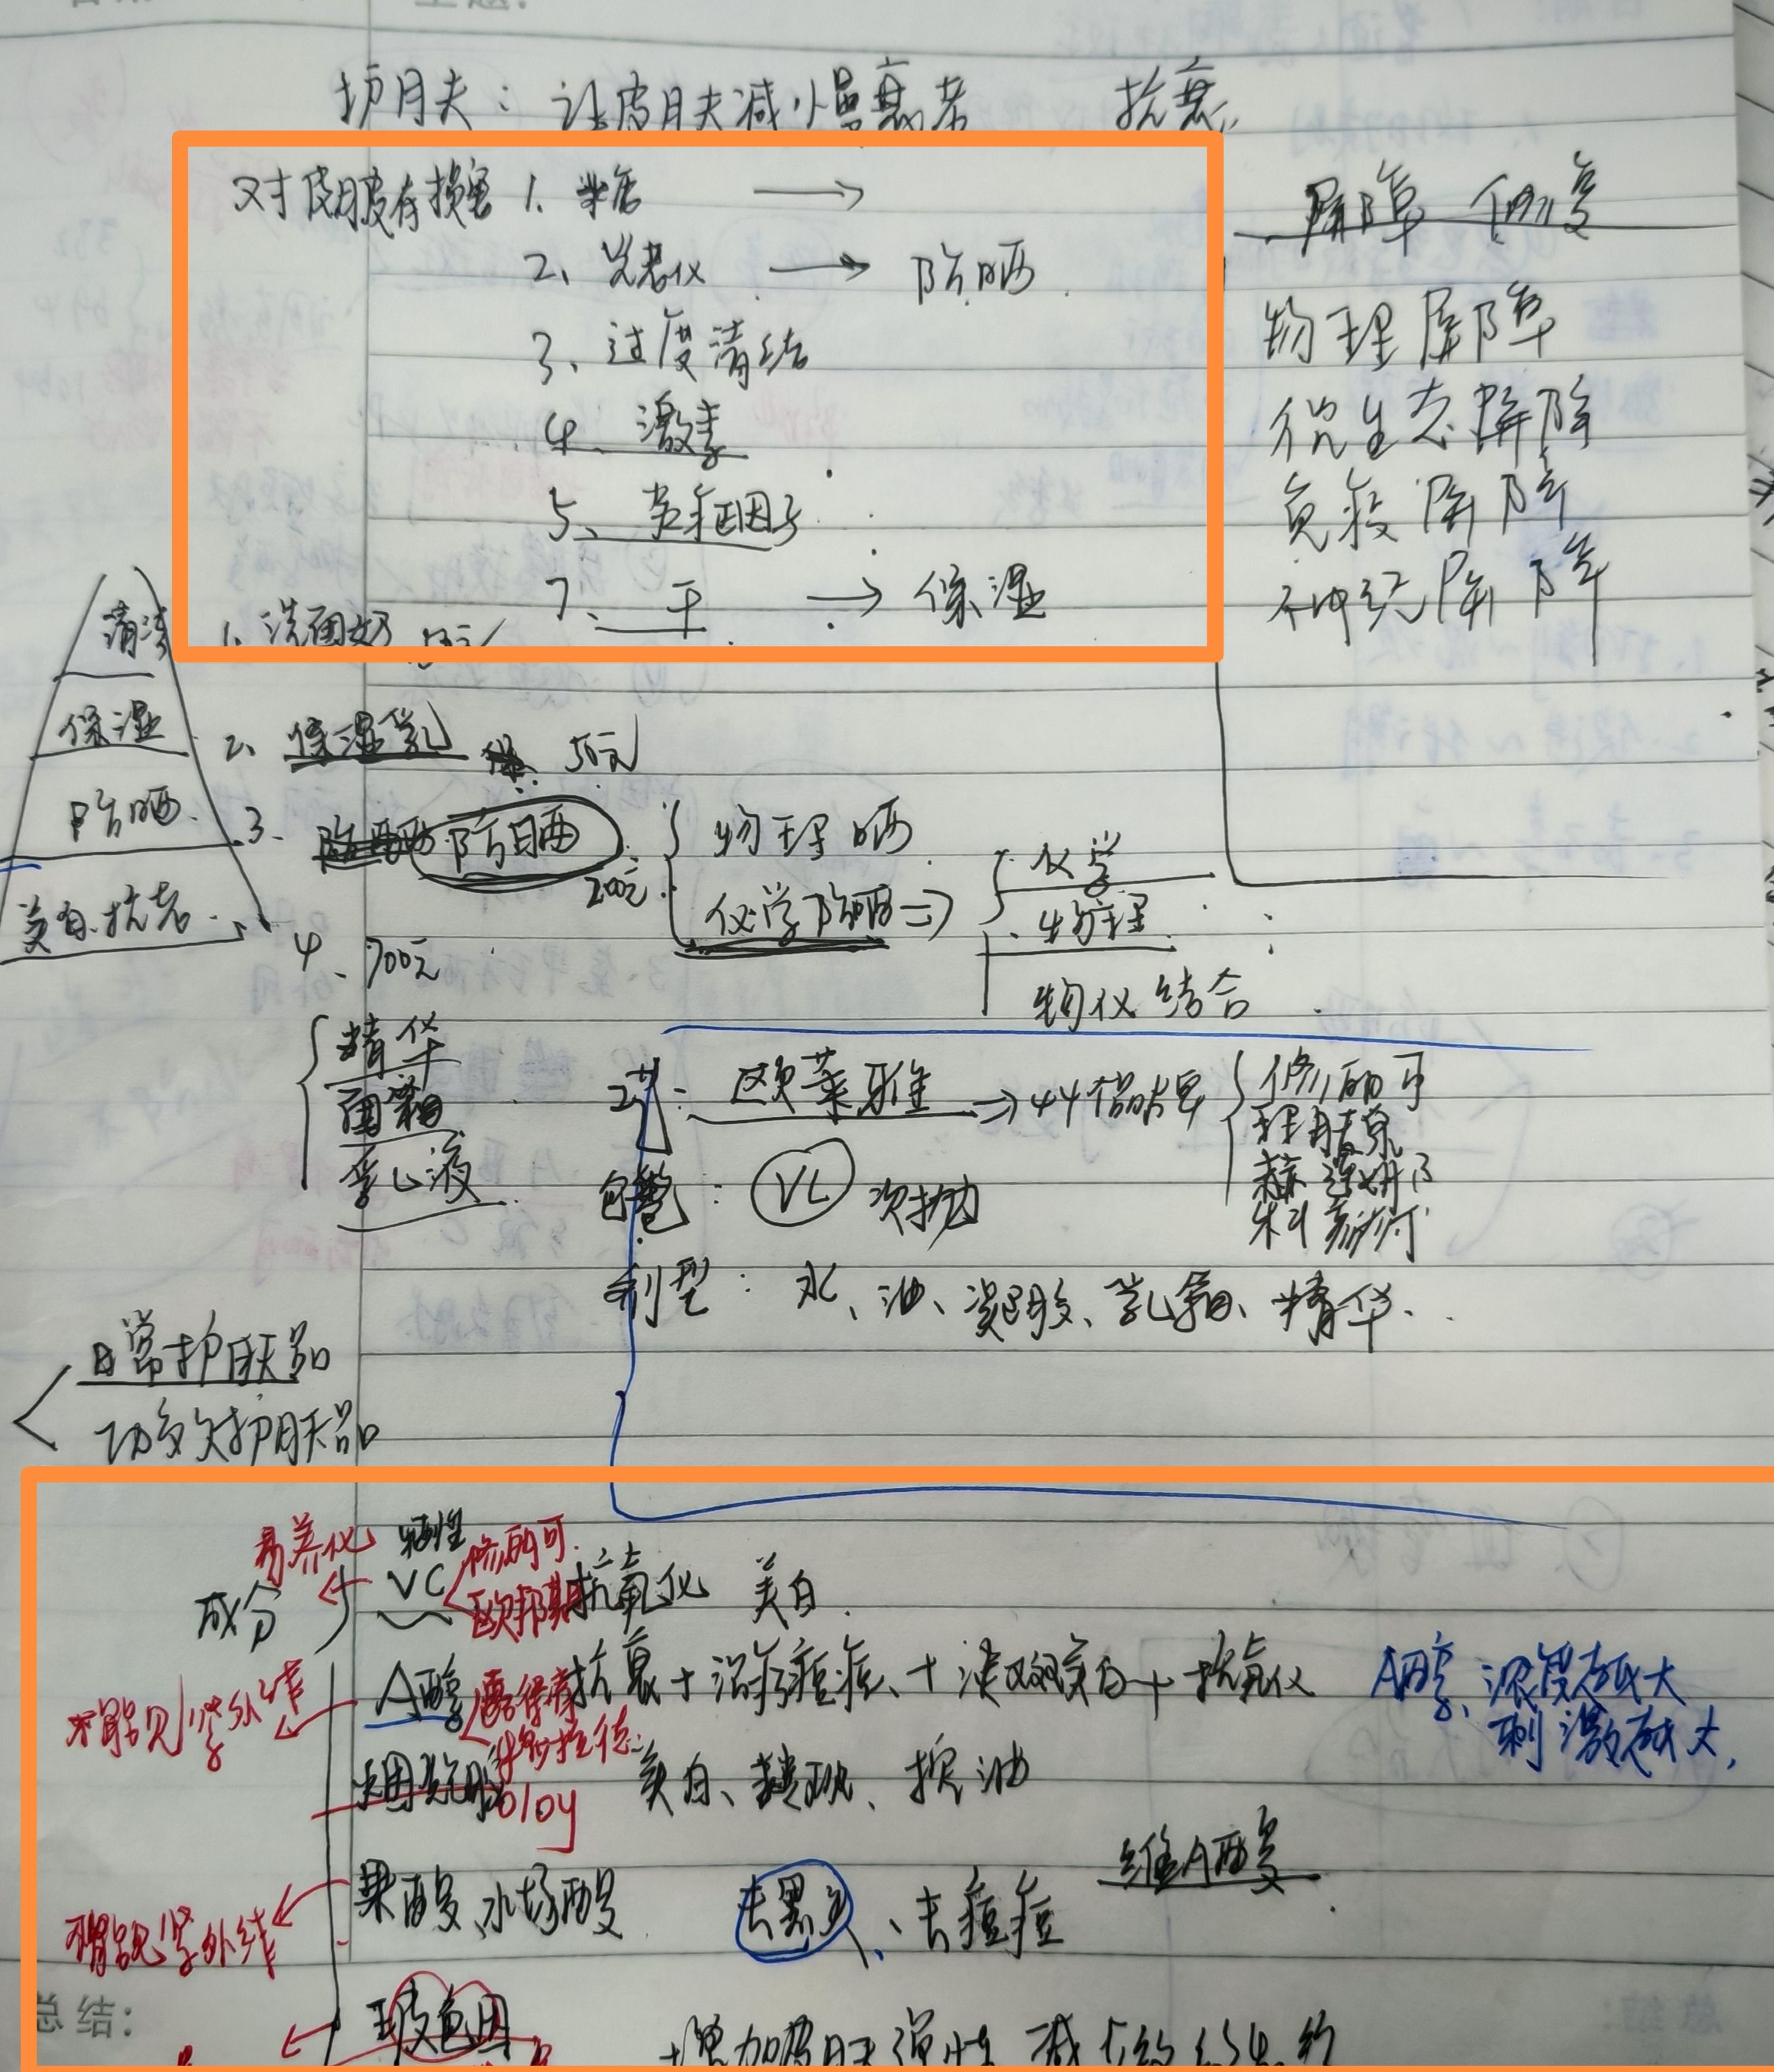 护肤：让皮肤减慢衰老 抗衰
对皮肤有损害 1. 糖 →
2、光老化 → 防晒
3、过度清洁
4、激素
5、炎症因子
7、干 → 保湿
屏障修复
物理屏障
微生态屏障
免疫屏障
神经屏障
清洁 1. 洗面奶
保湿 2、保湿乳 50元
防晒 3、防晒 200元 { 物理晒
化学防晒 ⇒ { 化学
物理
物化结合
美白、抗老 4、700元
{ 精华
面霜
乳液
欧莱雅 ⇒ 44个品牌 { 修丽可
理肤泉
赫莲娜
科颜氏
包 : VC 次抛
剂型：水、油、凝胶、乳霜、精华、
日常护肤品
功效护肤品
易养化
成分 VC 修丽可 抗氧化 美白
欧邦琪
不能见紫外线 A醇 露得清 抗衰+治疗痘痘、+淡斑美白+抗氧化
A醇、浓度越大
刺激越大，
烟酰胺 oloy 美白、提亮、控油
维A酸
不能见紫外线 果酸、水杨酸 去黑头、去痘痘
总结：
玻色因 增加皮肤弹性 减